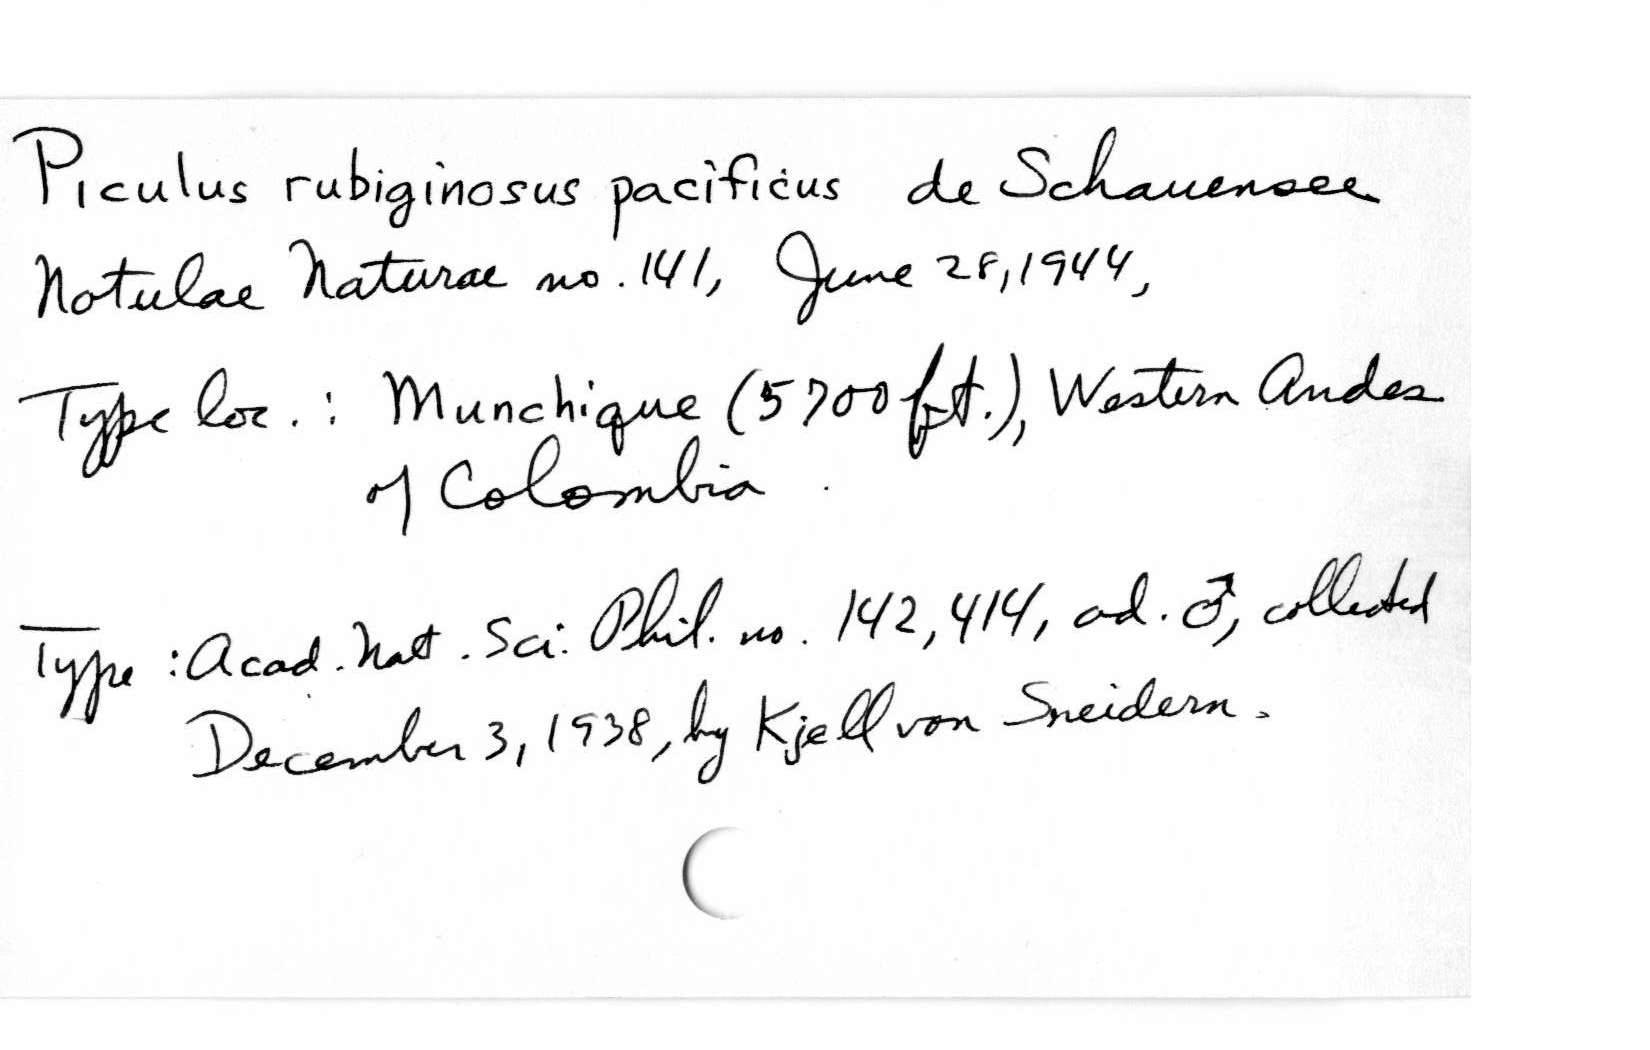 Piculus rubiginosus pacificus de Schauensee
Notulae Naturae no. 141, June 28, 1944,
Type loc. : Munchique (5700 ft.), Western Andes
of Colombia.
Type : Acad. Nat. Sci. Phil. no. 142,414, ad. ♂, collected
December 3, 1938, by Kjell von Sneidern.